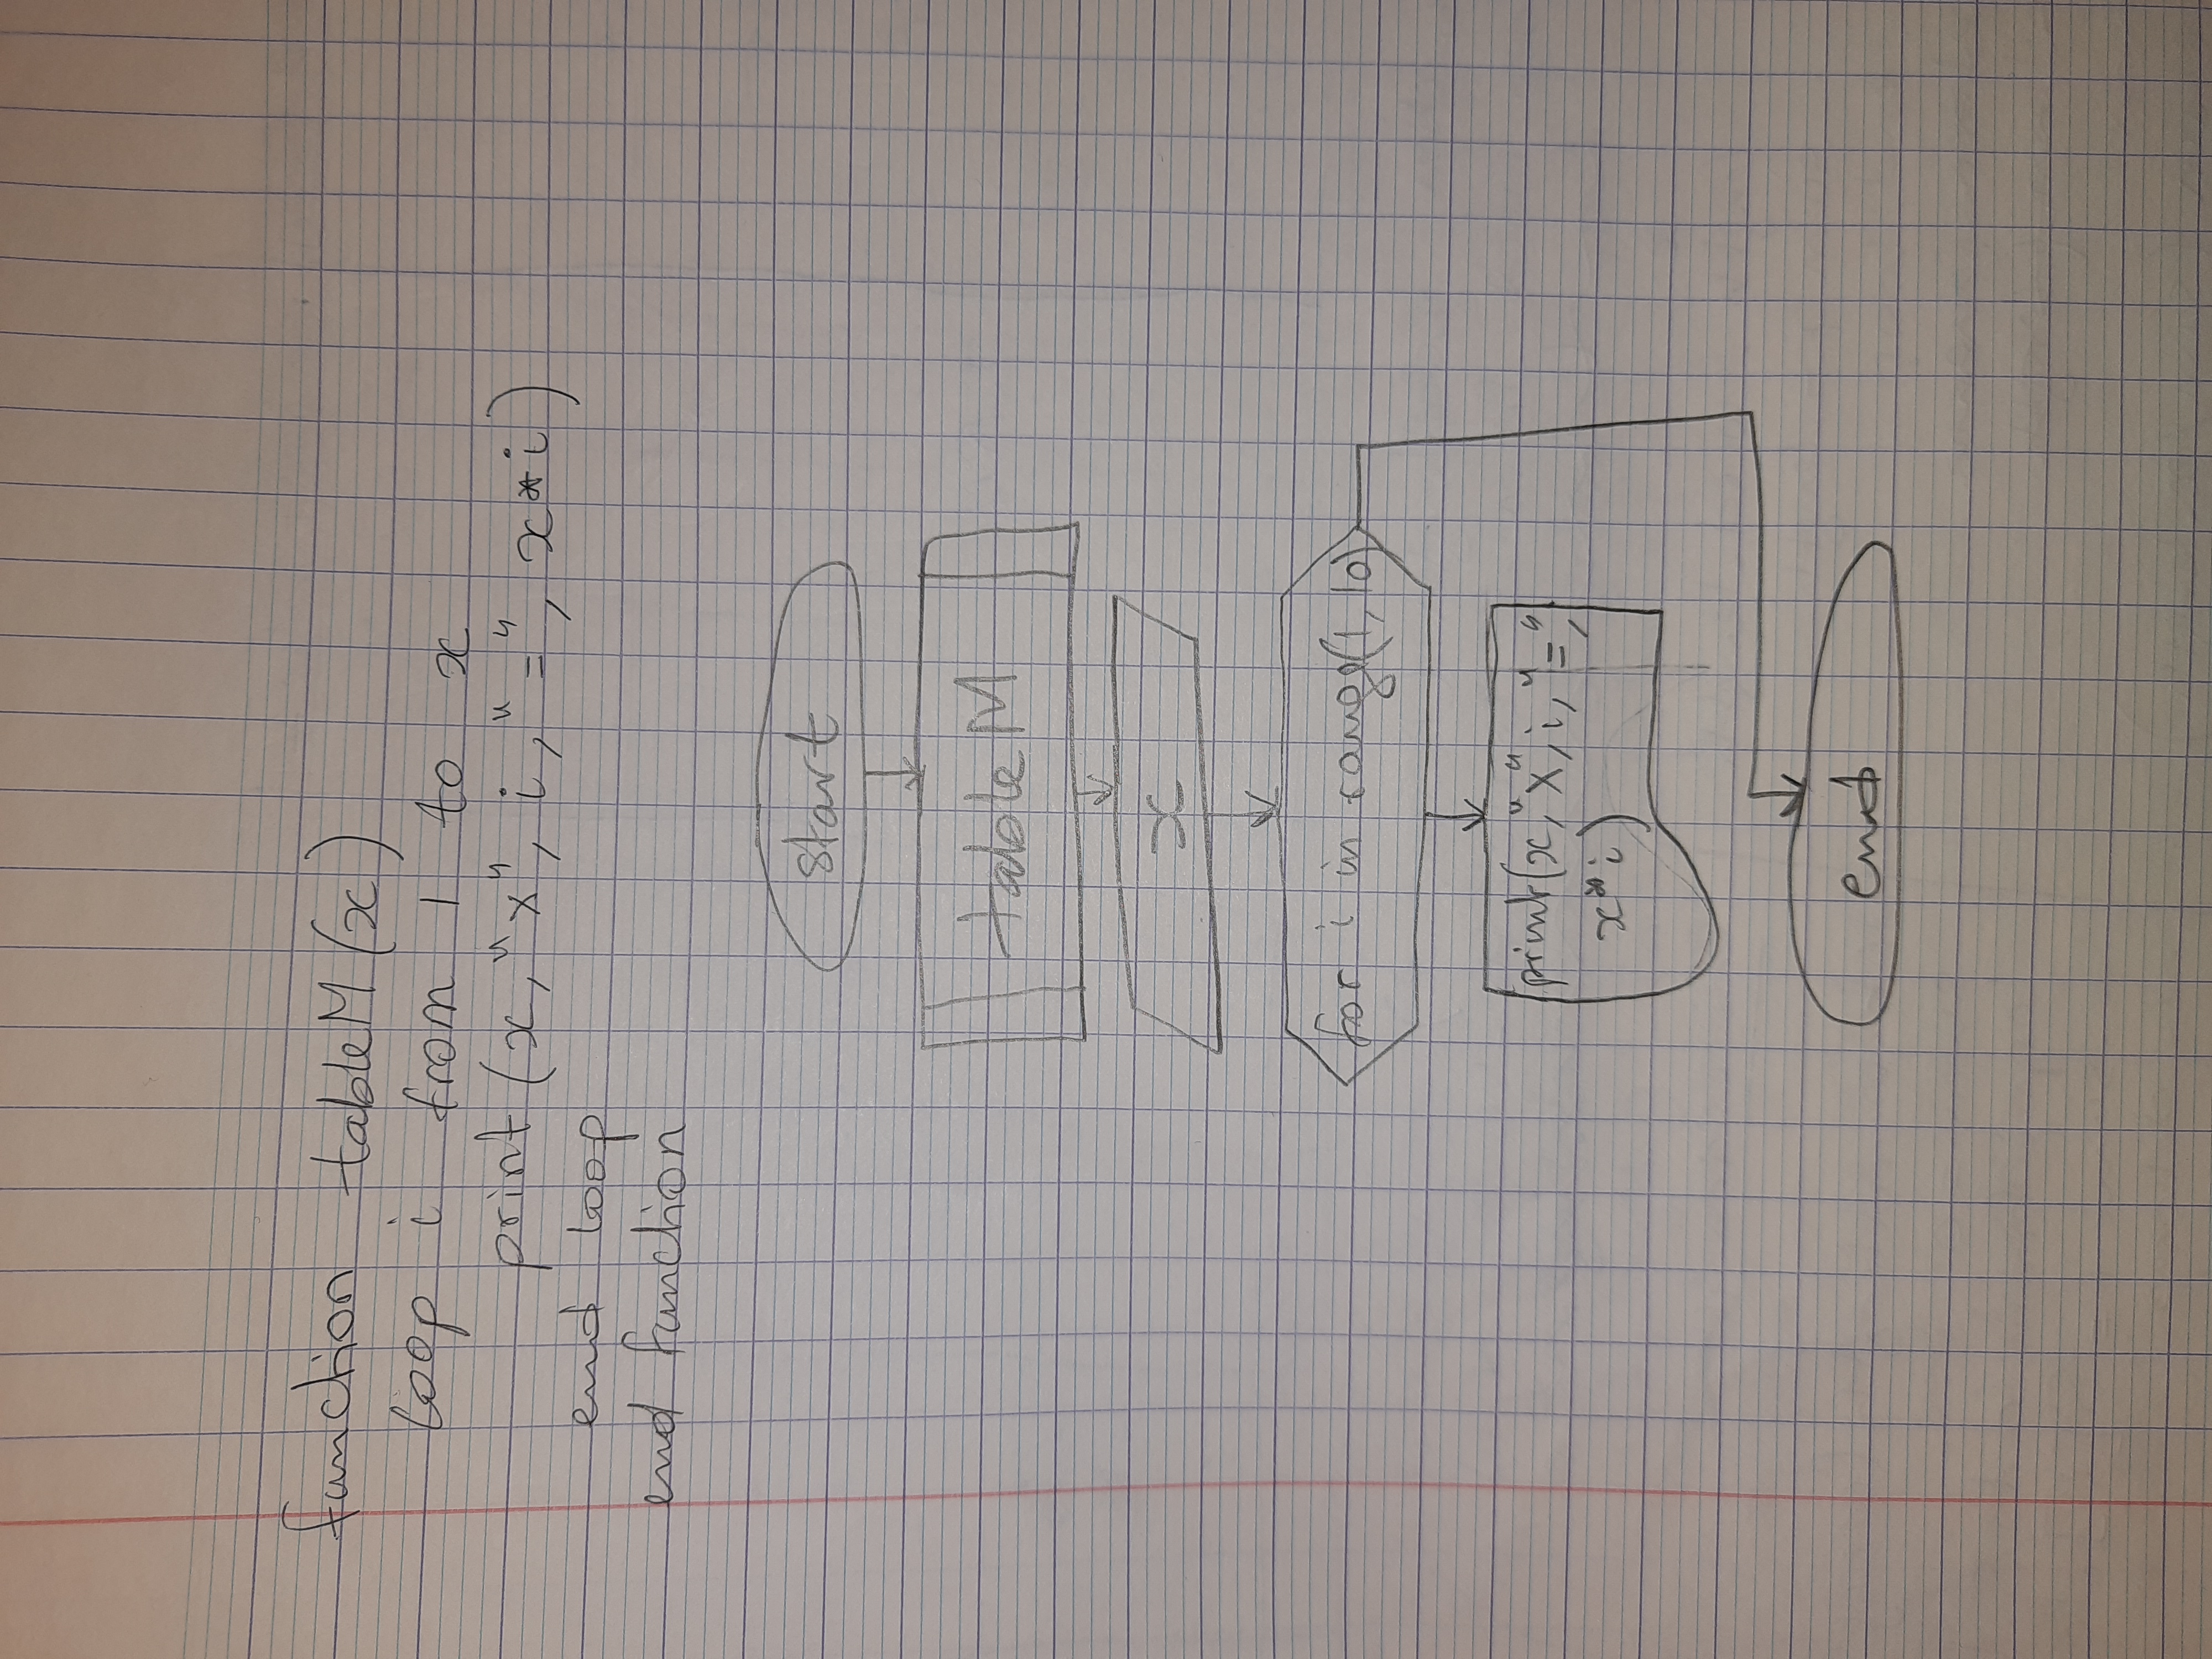 function tableM(x)
loop i from 1 to x
print (x, "x", i, "=", x*i)
end loop
end function
start
tableM
x
for i in range(1, 10)
print(x, "x", i, "=",
x*i)
end